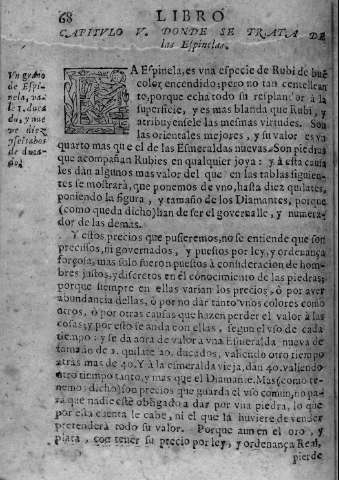 68 LIBRO
CAPITVLO V. DONDE SE TRATA DE
las Espinelas.
Vn grano
de Espi-
nela, va-
le 1. duca
do, y nue
ve diez
de duca-
dos.
LA Espinela, es vna especie de Rubi de buẽ
color encendido: pero no tan centellean
te, porque echa todo su resplandor à la
superficie, y es mas blanda que Rubi, y
atribuyenle las mesmas virtudes. Son
las orientales mejores, y su valor es vn
quarto mas que el de las Esmeraldas nuevas. Son piedras
que acompañan Rubies en qualquier joya: y à esta causa
les dàn algunos mas valor del que en las tablas siguien-
tes se mostrarà, que ponemos de vno, hasta diez quilates,
poniendo la figura, y tamaño de los Diamantes, porque
(como queda dicho) han de ser el governalle, y numera-
dor de las demas.
Y estos precios que pusieremos, no se entiende que son
precissos, ni governados, y puestos por ley, y ordenança
forçosa, mas solo fueron puestos à consideracion de hom-
bres justos, y discretos en el conocimiento de las piedras;
porque siempre en ellas varian los precios, ò por aver
abundancia dellas, ò por no dar tanto vnos colores como
otros, ò por otras causas que hazen perder el valor à las
cosas; y por esto se anda con ellas, segun el vso de cada
tiempo: y se dà aora de valor a vna Esmeralda nueva de
tamaño de 1. quilate 20. ducados, valiendo otro tiempo
atràs mas de 40. Y à la esmeralda vieja, dan 40. valiendo
otro tiempo tanto, y mas que el Diamante. Mas (como te-
nemos dicho) son precios que guarda el vso comun, no pa-
ra que nadie estè obligado a dar por vna piedra, lo que
por esta cuenta le cabe, ni el que la huviere de vender
pretenderà todo su valor. Porque aun en el oro, y
plata, con tener su precio por ley, y ordenança Real,
pierde